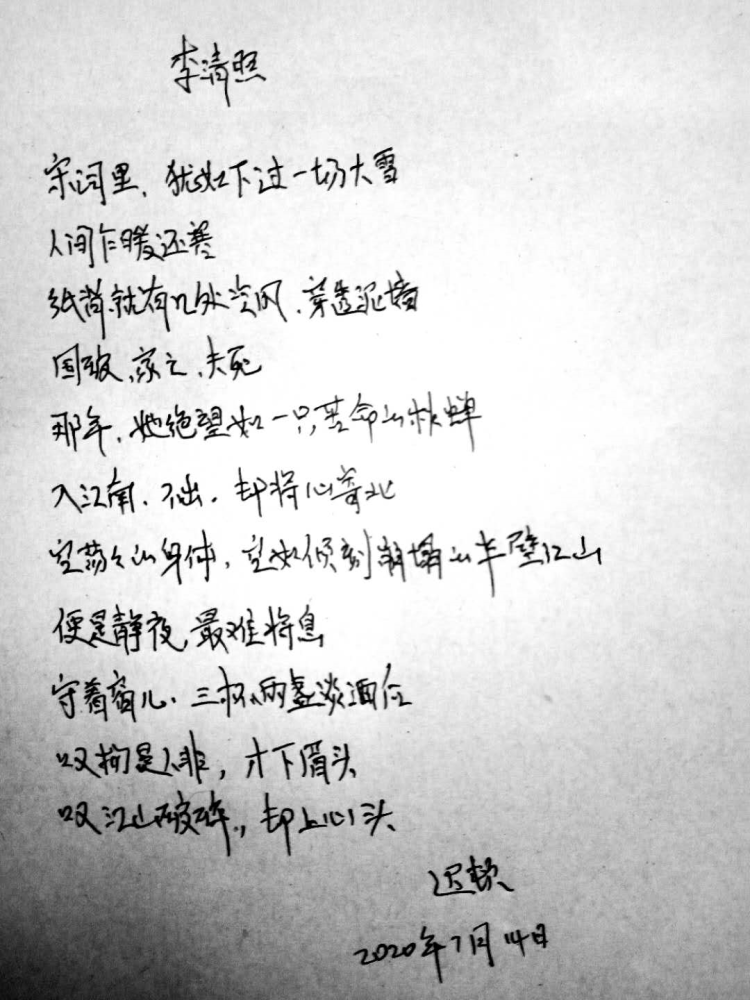 李清照
宋词里，犹如下过一场大雪
人间乍暖还寒
纸背就有几处空间，穿透泥墙
国破，家亡，夫死
那年，她绝望如一只苦命的秋蝉
入江南，不出，却将心寄北
空荡々的身体，宛如倾刻崩塌的半壁江山
便是静夜，最难将息
守着窗儿，三杯两盏淡酒
叹物是人非，才下眉头
叹江山破碎，却上心头
2020年7月14日